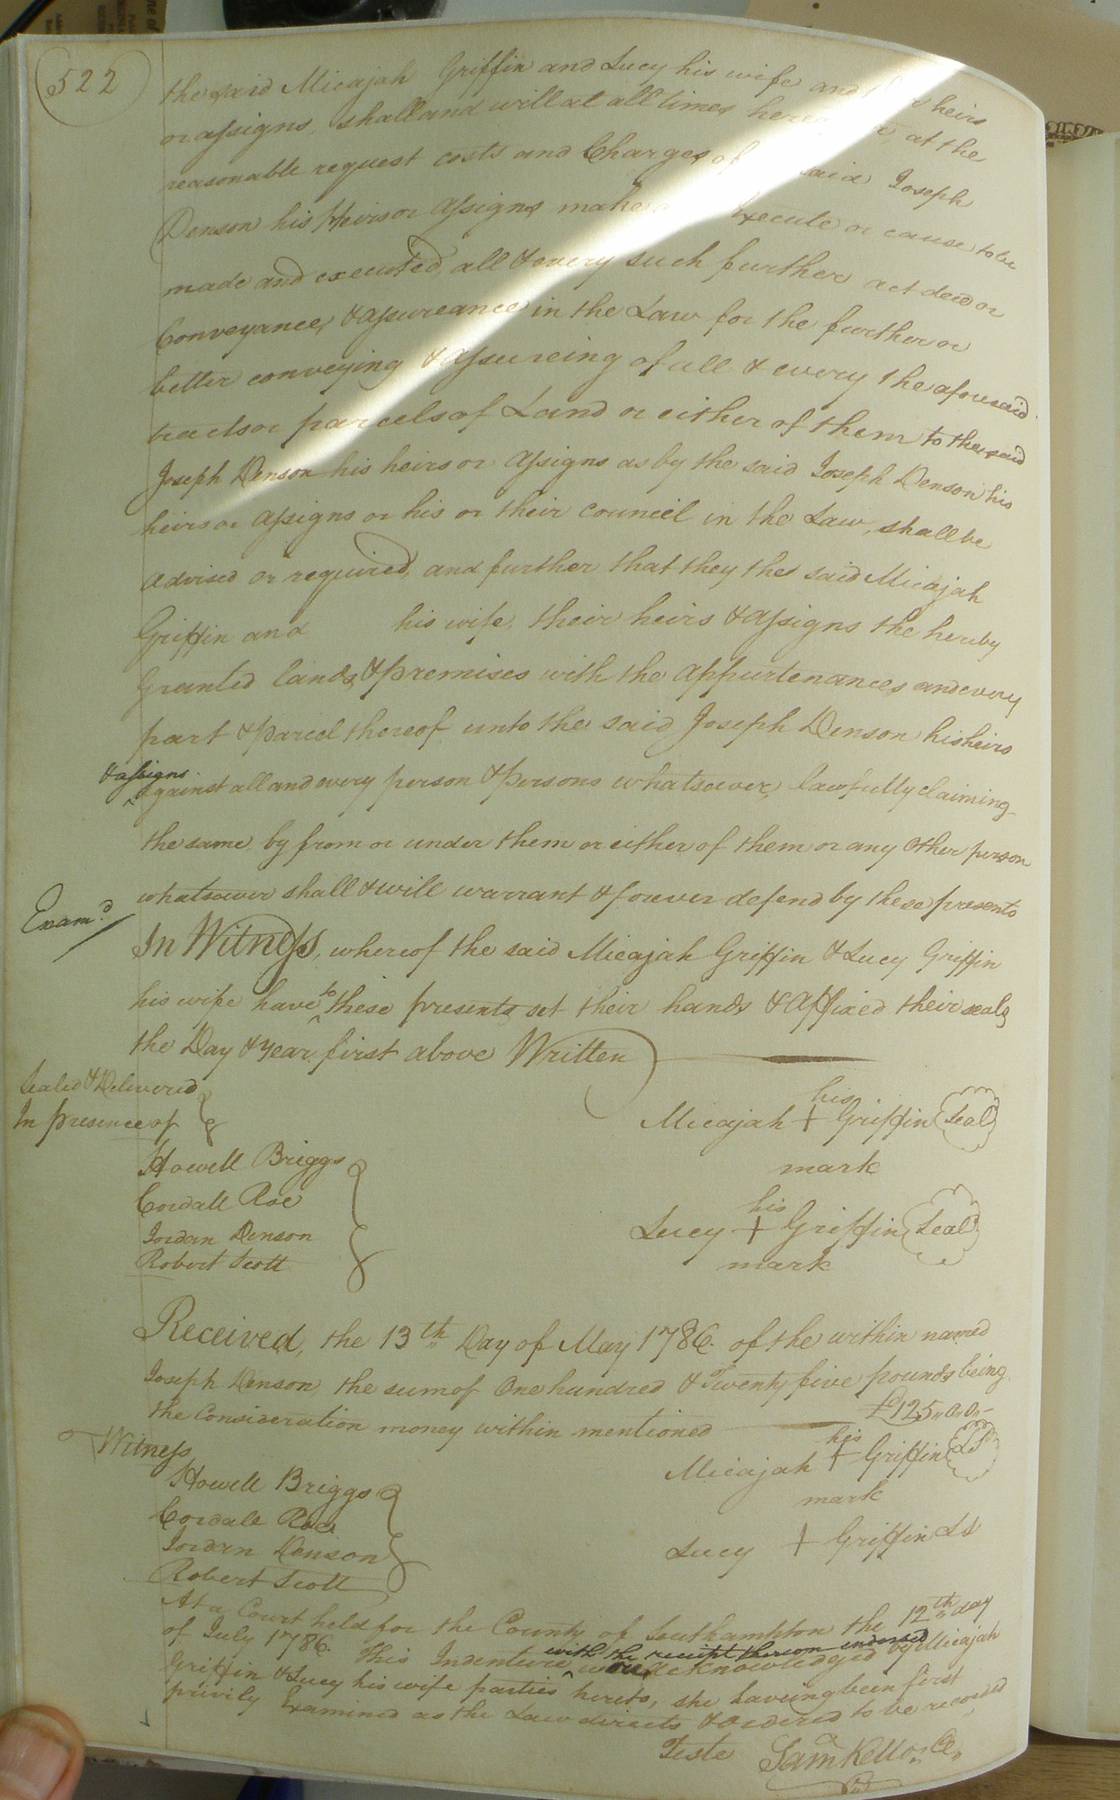 522
the said Micajah Griffin and Lucy his wife and heirs
or assigns, shall and will at all times at the
reasonable request costs and Charges of said Joseph
Denson his Heirs or assigns make Execute or cause to be
made and executed, all & every such further act deed or
Conveyance, & assureance in the Law for the further or
better conveying & assureing of all & every the aforesaid
tracts or parcels of Land or either of them to the said
Joseph Denson his heirs or assigns as by the said Joseph Denson his
heirs or assigns or his or their council in the Law, shall be
advised or required, and further that they the said Micajah
Griffin and his wife, their heirs & assigns the hereby
Granted lands & premises with the appurtenances and every
part & parcel thereof unto the said Joseph Denson his heirs
& assigns
against all and every person & persons whatsoever, lawfully claiming
the same by from or under them or either of them or any other person
whatsoever shall & will warrant & forever defend by these presents
Exam.d
In Witness, whereof the said Micajah Griffin & Lucy Griffin
his wife have to these presents set their hands & affixed their seals
the Day & year first above Written
Sealed & Delivered
In presence of
his
Micajah + Griffin Seal
mark
Howell Briggs
Cordall Roe
Jordan Denson
Robert Scott
his
Lucy + Griffin Seal
mark
Received, the 13th Day of May 1786. of the within named
Joseph Denson, the sum of One hundred & Twenty five pounds being
the Consideration money within mentioned £125,,0,,0,,
Witness
his
Micajah + Griffin LS
mark
Howell Briggs
Cordale Roe
Jordan Denson
Robert Scott
Lucy + Griffin LS
At a Court held for the County of Southampton the 12th day
of July 1786. This Indenture with the receipt thereon endorsed were acknowledged by Micajah
Griffin & Lucy his wife parties hereto, she having been first
privily Examined as the Law directs & ordered to be recorded
Teste Sam Kello,, Cl,,